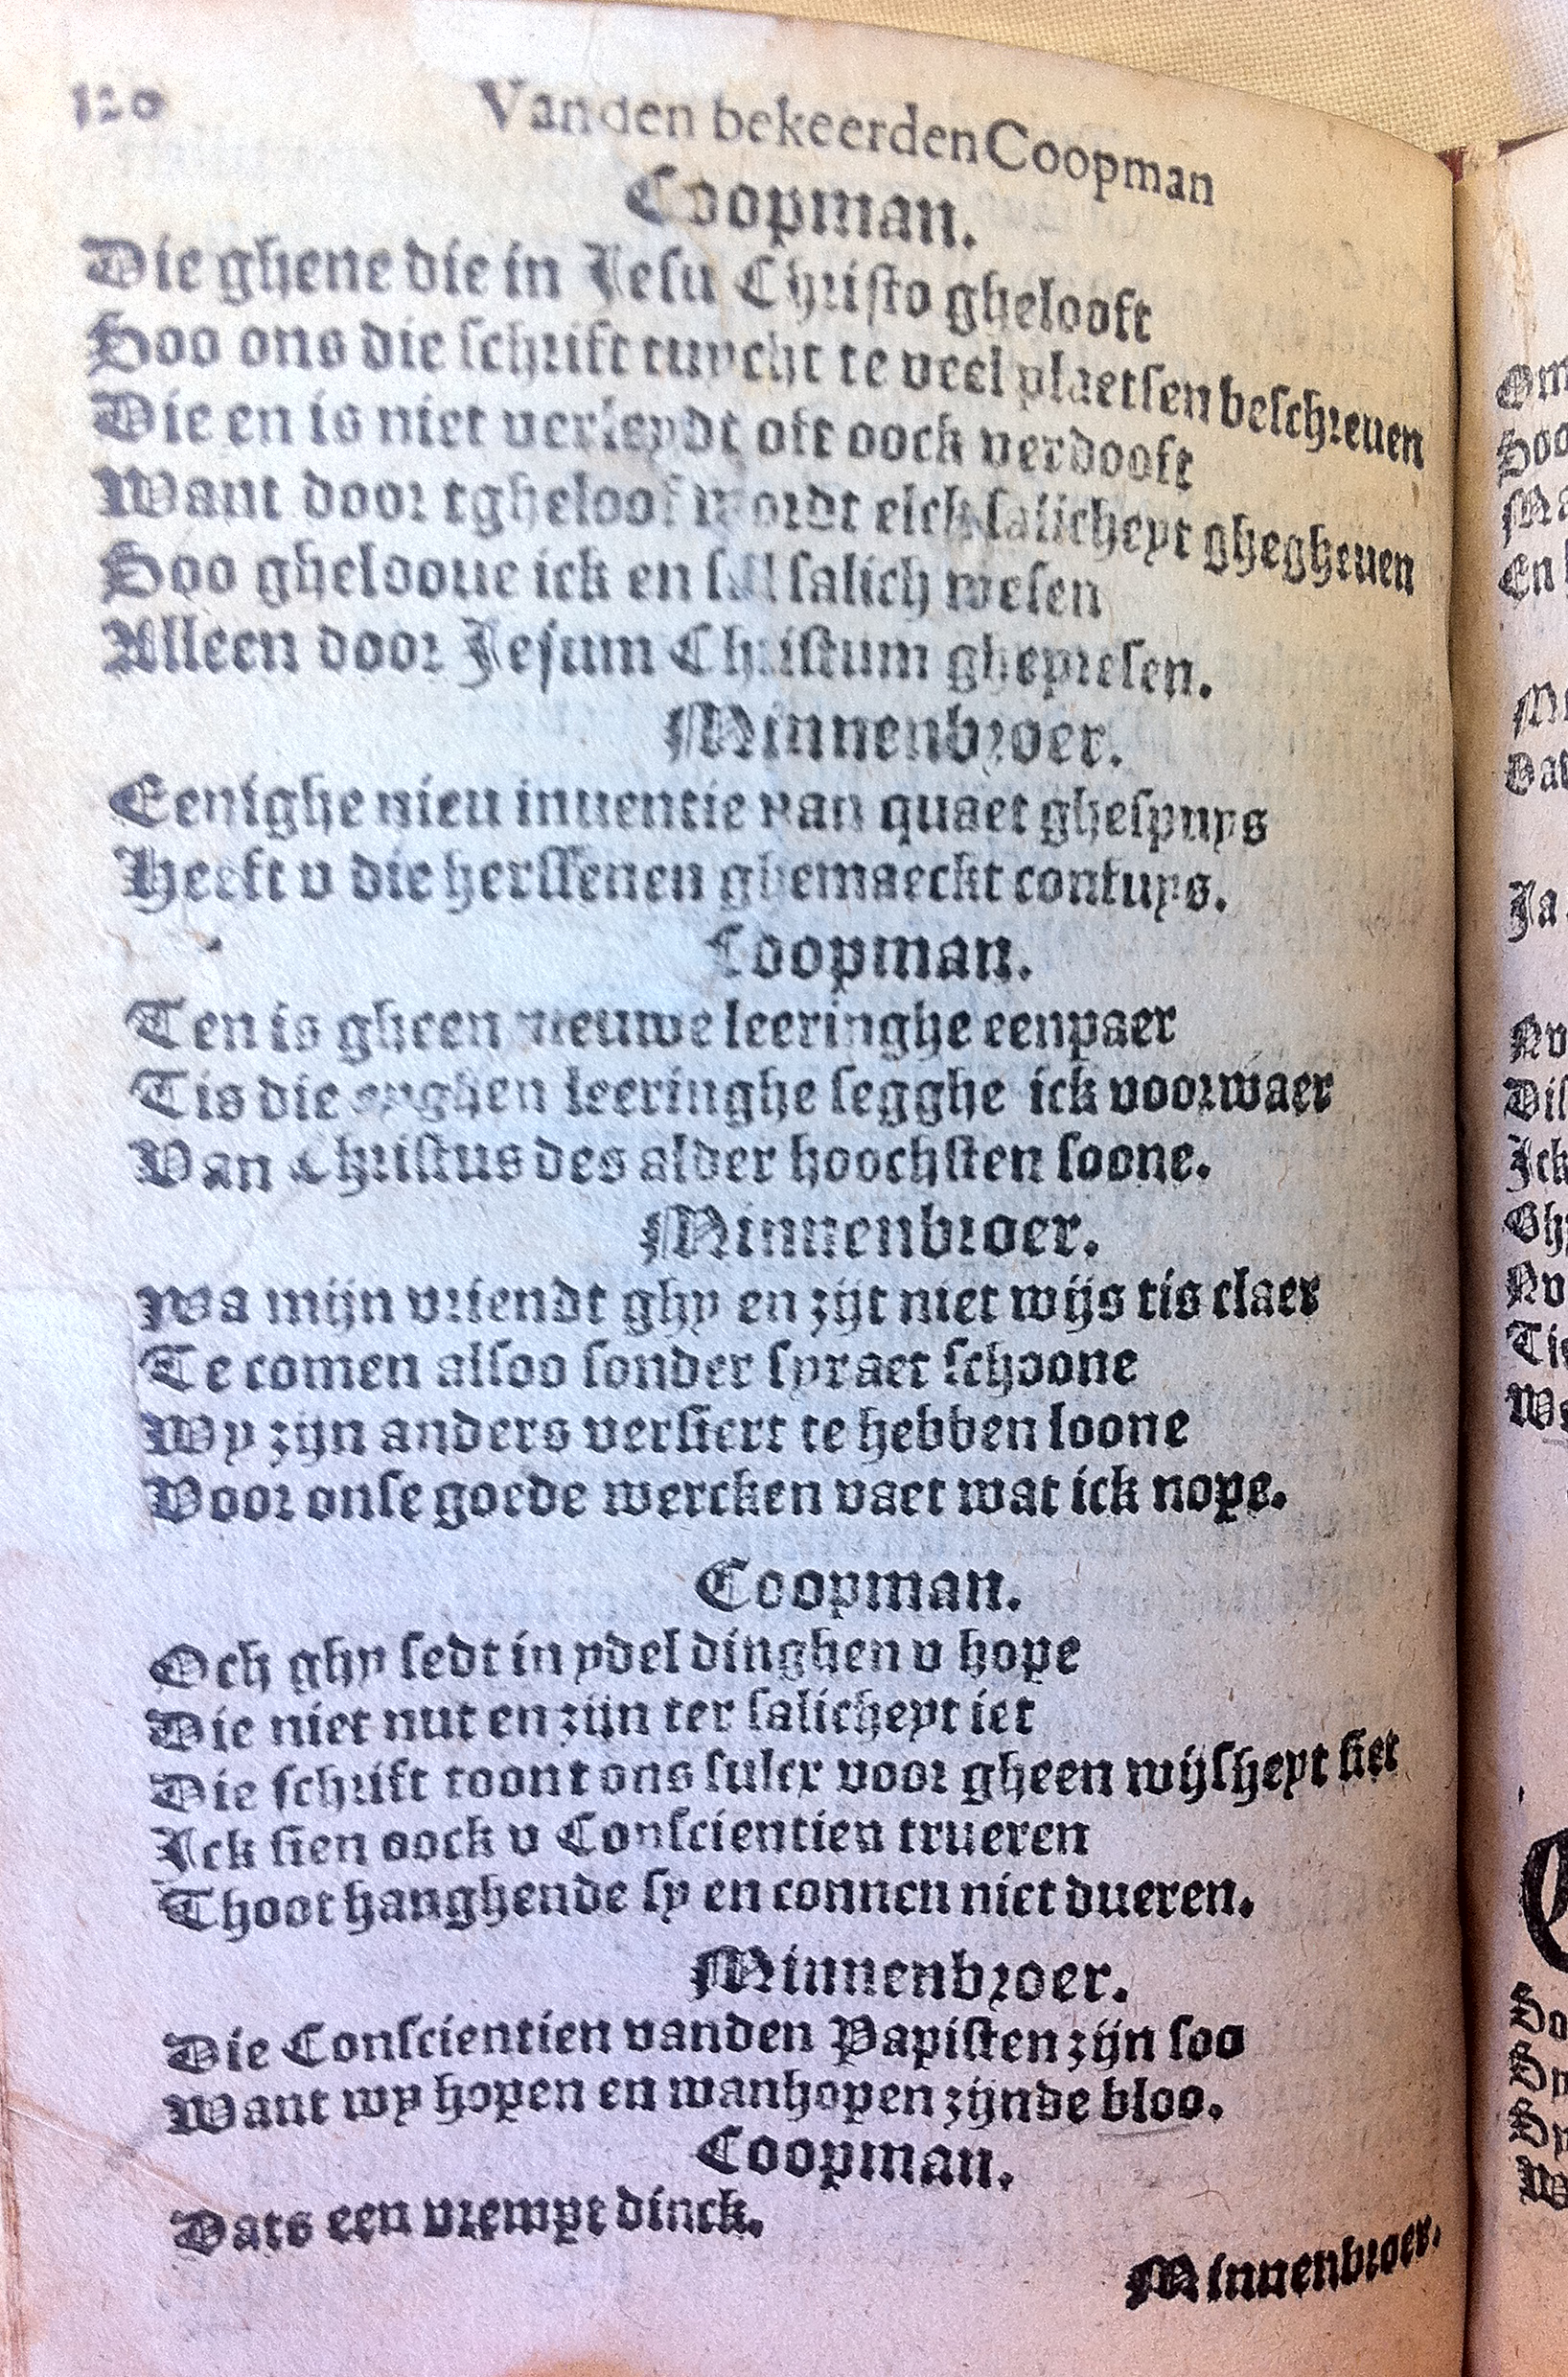 120 Van den bekeerden Coopman
Coopman.
Die ghene die in Jesu Christo ghelooft
Soo ons die schrift tuycht te veel plaetsen beschreuen
Die en is niet verleydt oft oock verdooft
Want door tgheloof wordt elck salicheyt ghegheuen
Soo ghelooue ick en sal salich wesen
Alleen door Jesum Christum ghepresen.
Minnenbroer.
Eenighe nieu inuentie van quaet ghespuys
Heeft v die herssenen ghemaeckt contuys.
Coopman.
Ten is gheen nieuwe leeringhe eenpaer
Tis die eyghen leeringhe segghe ick voorwaer
Van Christus des alder hoochsten soone.
Minnenbroer.
Wa mijn vriendt ghy en zijt niet wijs tis claer
Te comen alsoo sonder cyraet schoone
Wy zijn anders versiert te hebben loone
Voor onse goede wercken vaet wat ick nope.
Coopman.
Och ghy sedt in ydel dinghen v hope
Die niet nut en zijn ter salicheyt iet
Die schrift toont ons sulcx voor gheen wijsheyt siet
Ick sien oock v Conscientien trueren
Thoot hanghende sy en connen niet dueren.
Minnenbroer.
Die Conscientien vanden Papisten zijn soo
Want wy hopen en wanhopen zijnde bloo.
Coopman.
Dats een vrempt dinck.
Minnenbroer.
Om
Soo
En
Dat
Ja
Nv
Dit
Ick
Ghy
Nv